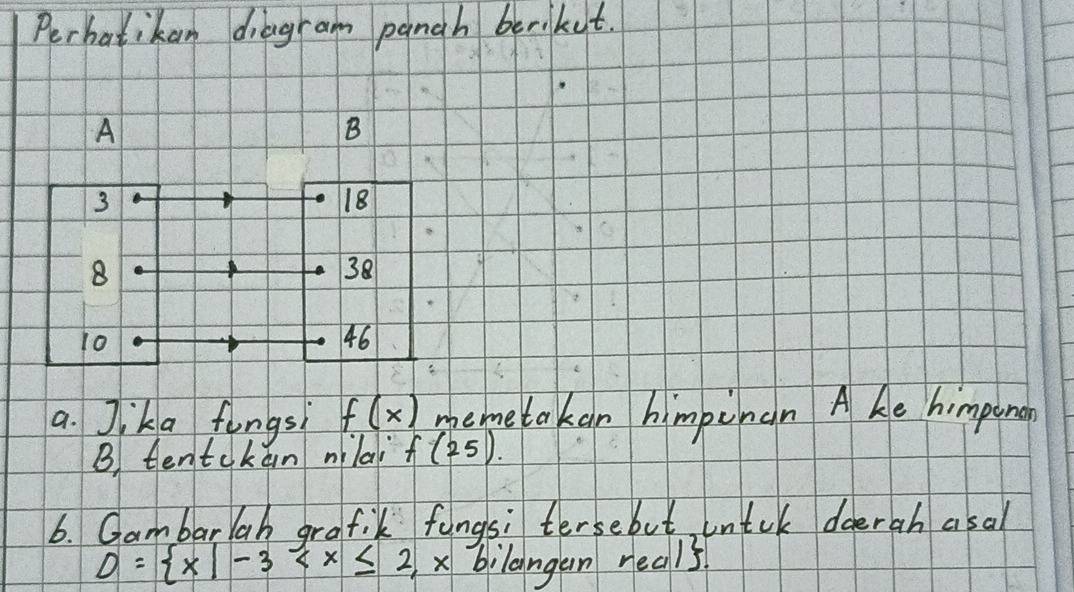 Perhatikan diagram panah berikut.
A B
3 18
8 38
10 46
a. Jika fungsi f(x) memetakan himpunan A ke himpunan
B, tentukan nilai f(25).
b. Gambarlah grafik fungsi tersebut untuk daerah asal
D = {x | -3 < x ≤ 2, x bilangan real}.